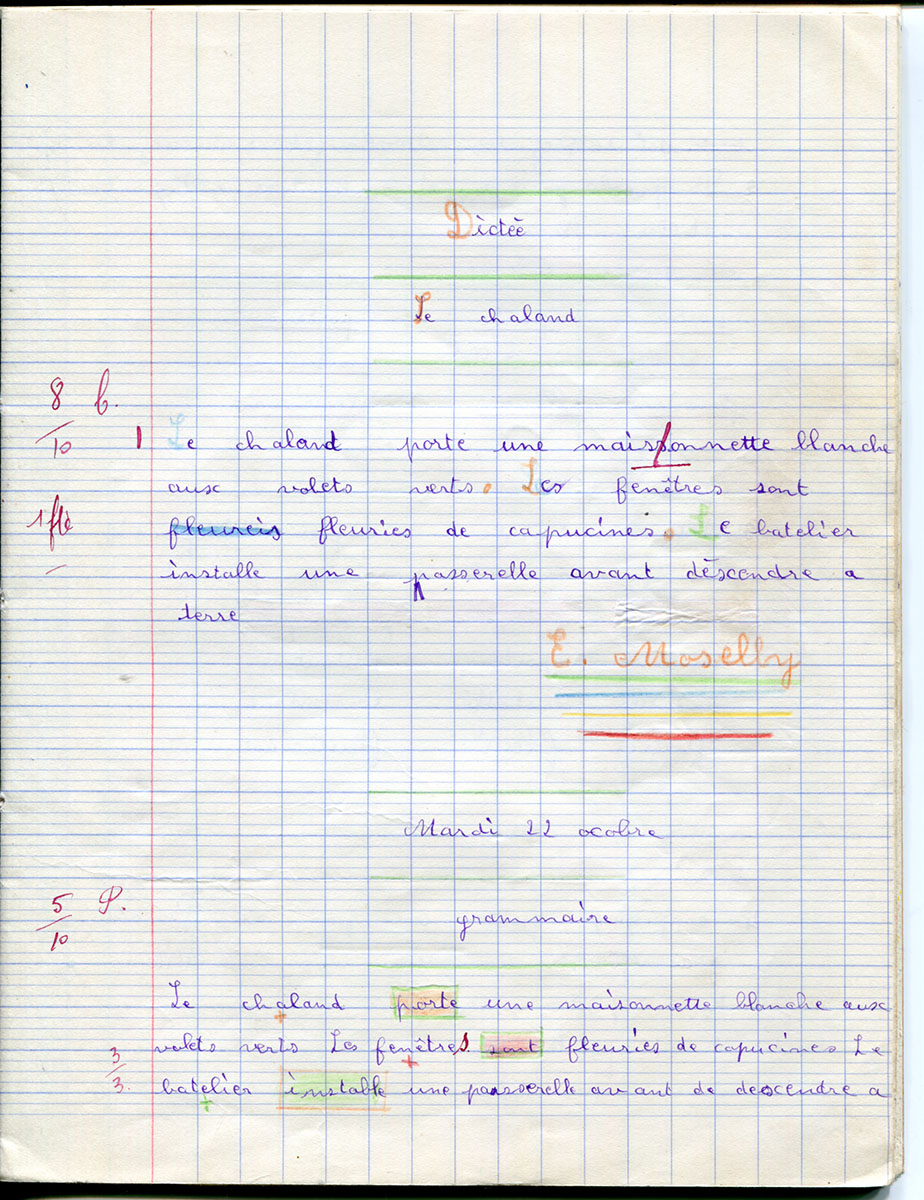 Dictée
Le chaland
8 b.
10
1 Le chaland porte une maissonnette blanche
aux volets verts. Les fenêtres sont
fleureis fleuries de capucines. Le batelier
installe une passerelle avant déscendre a
terre
E. Moselly
Mardi 22 ocobre
5 P.
10
grammaire
Le chaland porte une maisonnette blanche aux
volets verts Les fenêtres sont fleuries de capucines Le
3
3.
batelier installe une passerelle avant de descendre a